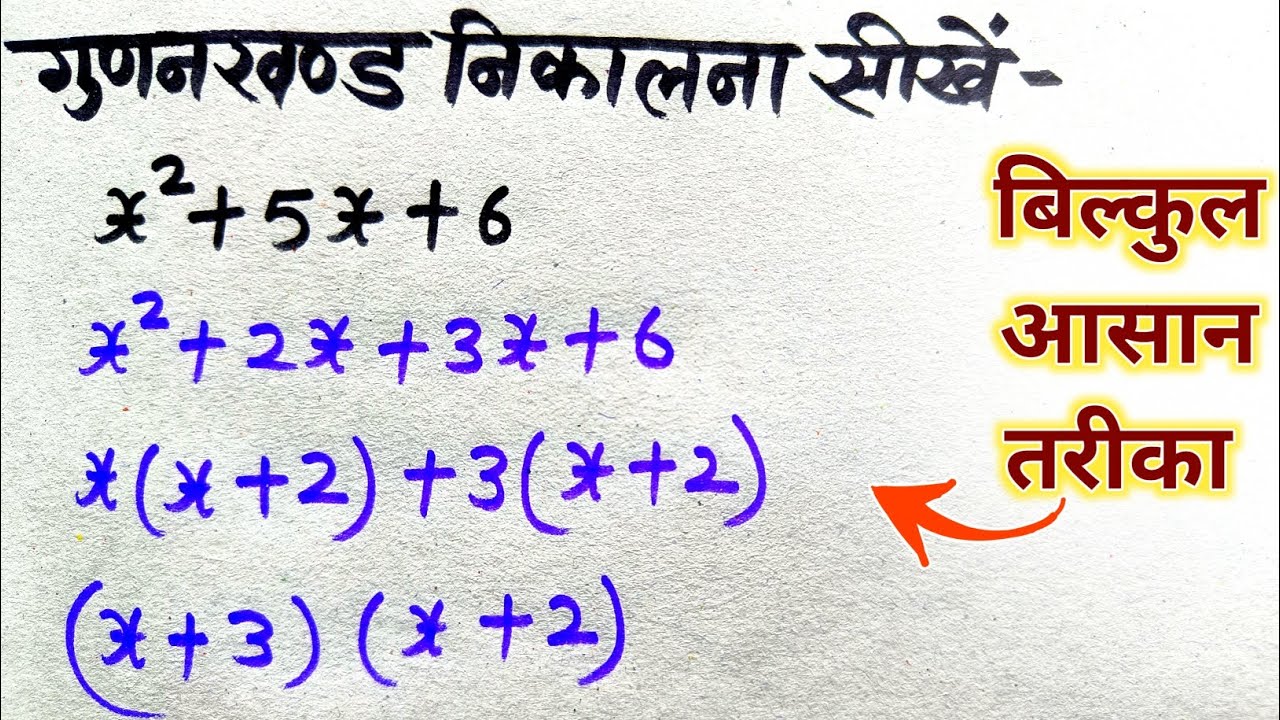 गुणनखण्ड निकालना सीखें -
x² + 5x + 6
x² + 2x + 3x + 6
x(x + 2) + 3(x + 2)
(x + 3) (x + 2)
बिल्कुल
आसान
तरीका